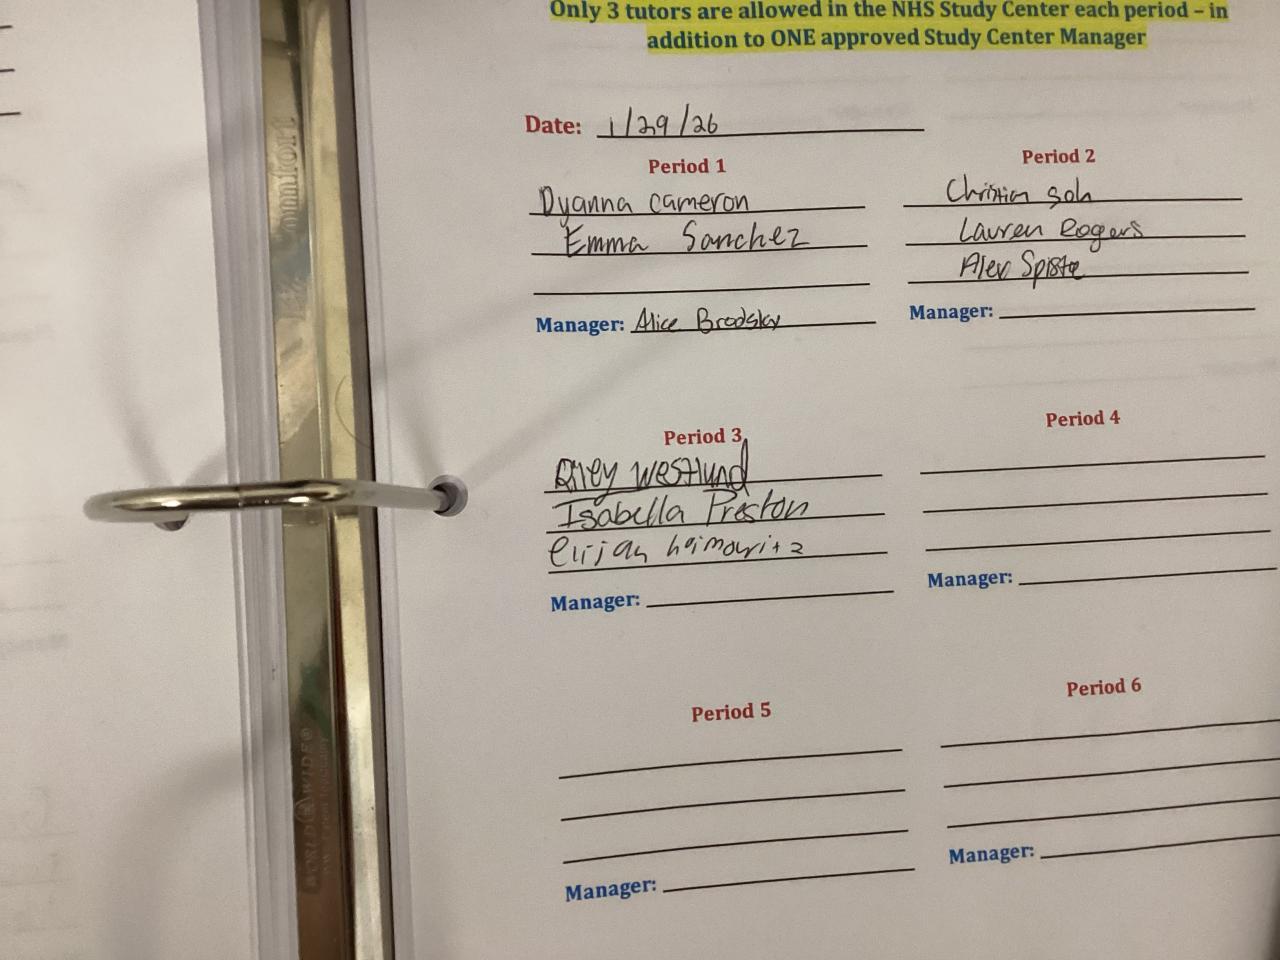 Only 3 tutors are allowed in the NHS Study Center each period – in
addition to ONE approved Study Center Manager
Date: 1/29/26
Period 1
Dyanna Cameron
Emma Sanchez
Manager: Alice Brodsky
Period 2
Christian Soh
Lauren Rogers
Alex
Manager:
Period 3
Riley Westlund
Isabella Preston
haimowitz
Manager:
Period 4
Manager:
Period 5
Manager:
Period 6
Manager:
WORLD WIDE